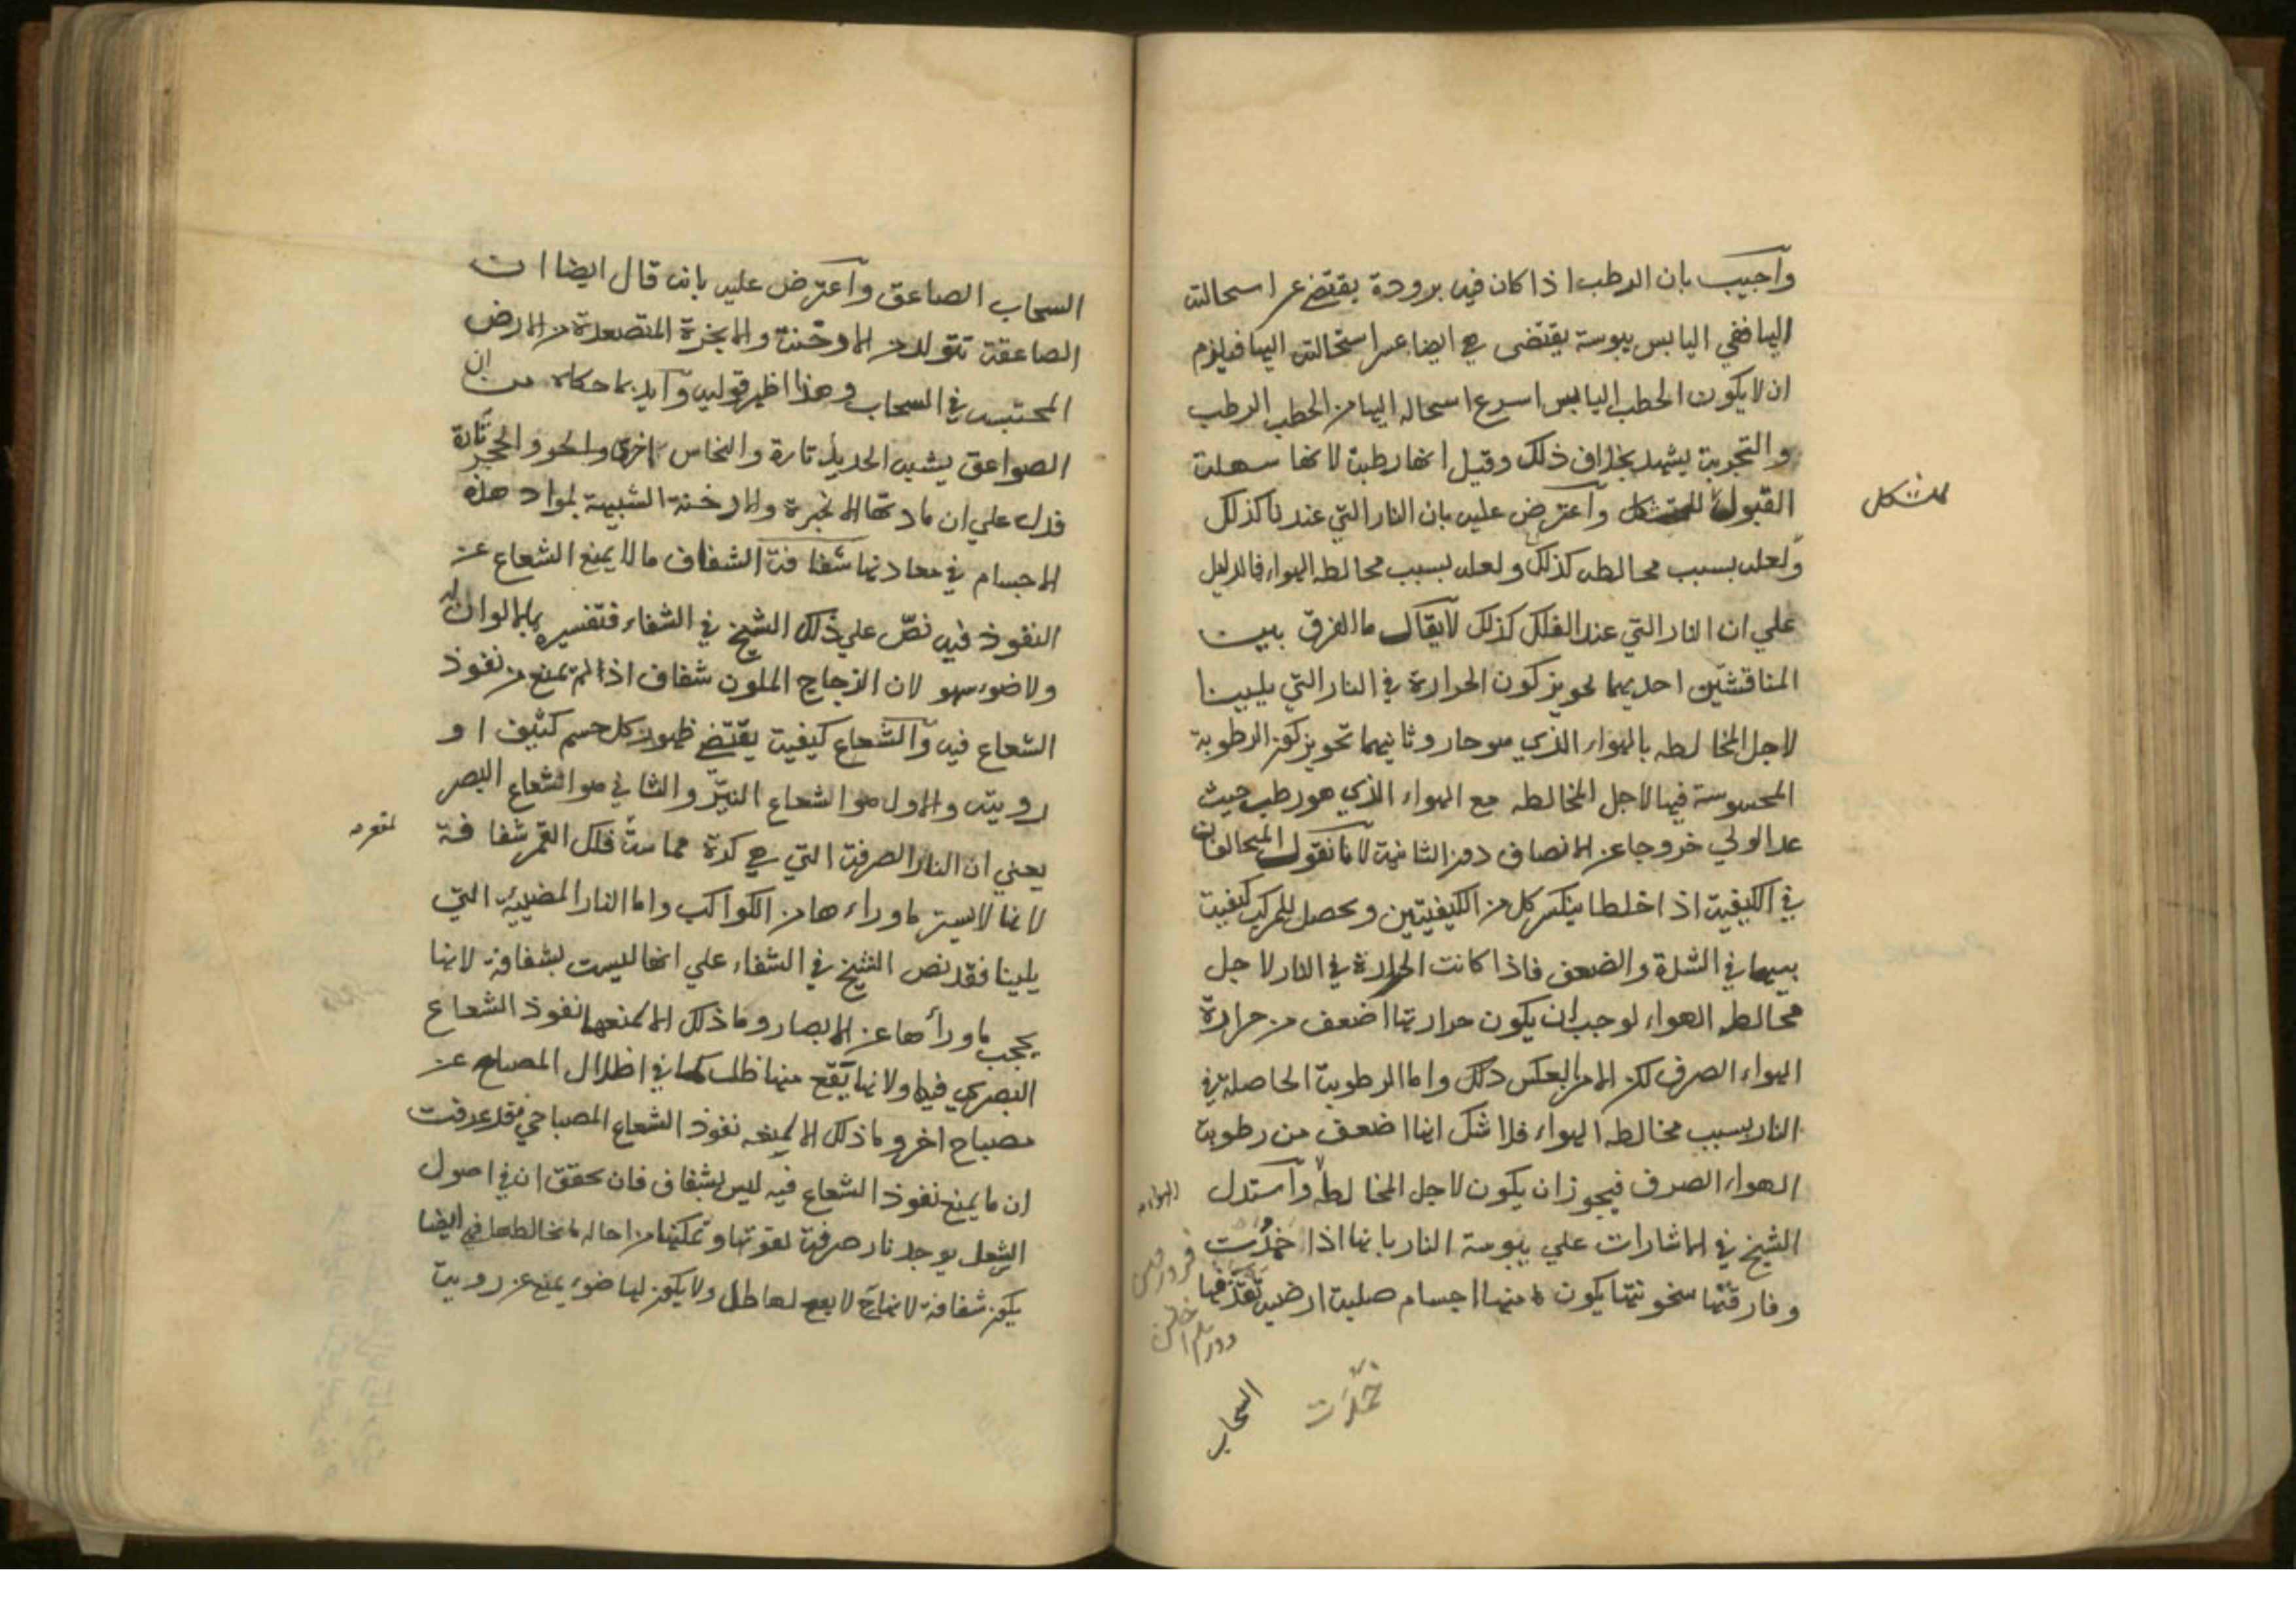 وأجيب بان الرطب اذا كان فيه برودة يقتضي عسر استحالته
اليها ففي اليابس يبوسة يقتضى هي ايضا عسر استحالته اليها فيلزم
ان لا يكون الحطب اليابس اسرع استحاله اليها من الحطب الرطب
والتجربة يشهد بخلاف ذلك وقيل انها رطبة لانها سهلة
القبول للتشكل وأعترض عليه بان النار التي عندنا كذلك
للتشكل
ولعله بسبب مخالطه كذلك ولعله بسبب مخالطه الهواء فالدليل
علي ان النار التي عند الفلك كذلك لا يقال ما الفرق بين
المناقشتين احديهما تحويز كون الحرارة في النار التي يلينا
لاجل المخالطه بالهواء الذي هو حار وثانيهما تحويز كون الرطوبة
المحسوسة فيها لاجل المخالطه مع الهواء الذي هو رطب حيث
عد الاولي خروجا عن الانصاف دون الثانية لانا نقول المتخالفان
في الكيفية اذا اختلطا ينكسر كل من الكيفيتين ويحصل للمركب كيفية
بينهما في الشدة والضعف فاذا كانت الحرارة في النار لاجل
مخالطه الهواء لوجب ان يكون حرارتها اضعف من حرارة
الهواء الصرف لكن الامر بالعكس ذلك واما الرطوبة الحاصلة في
النار بسبب مخالطه الهواء فلا شك انها اضعف من رطوبة
الهواء الصرف فيجوز ان يكون لاجل المخالطه وأستدل
الهواء
الشيخ في الاشارات علي يبوسة النار بانها اذا خمدت
وفارقتها سخونتها يكون منها اجسام صلبة ارضية تقذفها
خمدت
السحاب
السحاب الصاعق وأعترض عليه بانه قال ايضا ان
الصاعقة تتولد من الادخنة والابخرة المتصعدة من الارض
المحتبسة في السحاب وهذا اظهر قوليه وأيد بما حكاه من ان
الصواعق يشبه الحديد تارة والنحاس اخرى والحجر تارة
فدل علي ان مادتها الابخرة والادخنة الشبيهة لمواد هذه
الاجسام في معادنها شفافة الشفاف ما لا يمنع الشعاع عن
النفوذ فيه نصّ علي ذلك الشيخ في الشفاء فتفسيره بما لا لون له
ولا ضوء سهو لان الزجاج الملون شفاف اذا لم يمنع من نفوذ
الشعاع فيه والشعاع كيفية يقتضي ظهور كل جسم كثيف او
رويته والاول هو الشعاع النيّر والثاني هو الشعاع البصر
يعني ان النار الصرفة التي هي كرة مماسة فلك القمر شفافة
لمقعره
لانها لا يستر ماوراءها من الكواكب واما النار المضيئة التي
يلينا فقد نص الشيخ في الشفاء علي انها ليست بشفافة لانها
يحجب ماورأها عن الابصار وما ذلك الا لمنعها نفوذ الشعاع
البصري فيها ولانها يقع منها ظلال كما في اظلال المصباح عن
مصباح اخر وما ذلك الا لمنعه نفوذ الشعاع المصباحي وقد عرفت
ان ما يمنع نفوذ الشعاع فيه ليس بشفاف فان تحقق ان في اصول
الشعل يوجد نار صرفة لقوتها وتمكنها من احالة ما يخالطها فهي ايضا
يكون شفافة لانها ح لا يقع لها ظل ولا يكون لها ضوء يمنع عن روية